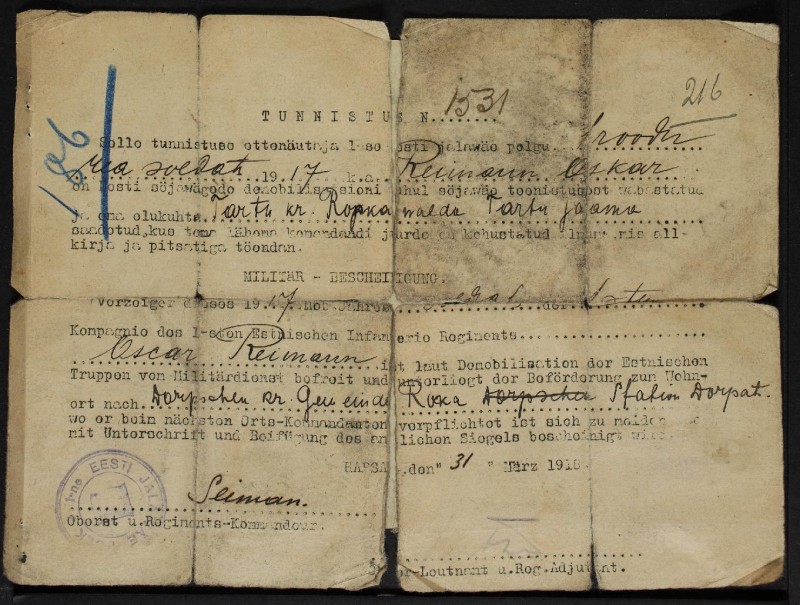 TUNNISTUS N. 1531
216
186
Selle tunnistuse ettenäutaja 1-se Eesti jalawäe polgu
soldat 1917 k.a. Reimann Oskar
on Eesti söjawägede demobilisatsioni puhul söjawäe teenistusest wabastatud
ja oma elukohta Tartu kr. Ropka walda Tartu jaama
saadetud, kus tema lähema komandandi juurde on kohustatud ilmuma, mis all-
kirja ja pitsatiga töendan.
MILITÄR - BESCHEINIGUNG.
Vorzeiger dieses 1917 der Ersten
Kompagnie des 1-sten Estnischen Infanterie Regiments
Oscar Reimann ist laut Demobilisation der Estnischen
Truppen von Militärdienst befreit und unterliegt der Beförderung zum Wohn-
ort nach Dorpschen kr. Gemeinde Roxa Dorpschen Station Dorpat.
wo er beim nächsten Orts-Kommandanten verpflichtet ist sich zu melden
mit Unterschrift und Beifügung des amtlichen Siegels bescheinigt wird
HAPSAL, den "31" März 1918
I-ne EESTI JAL
Seiman.
Oberst u. Regiments-Kommandeur.
Leutnant u. Reg. Adjutant.